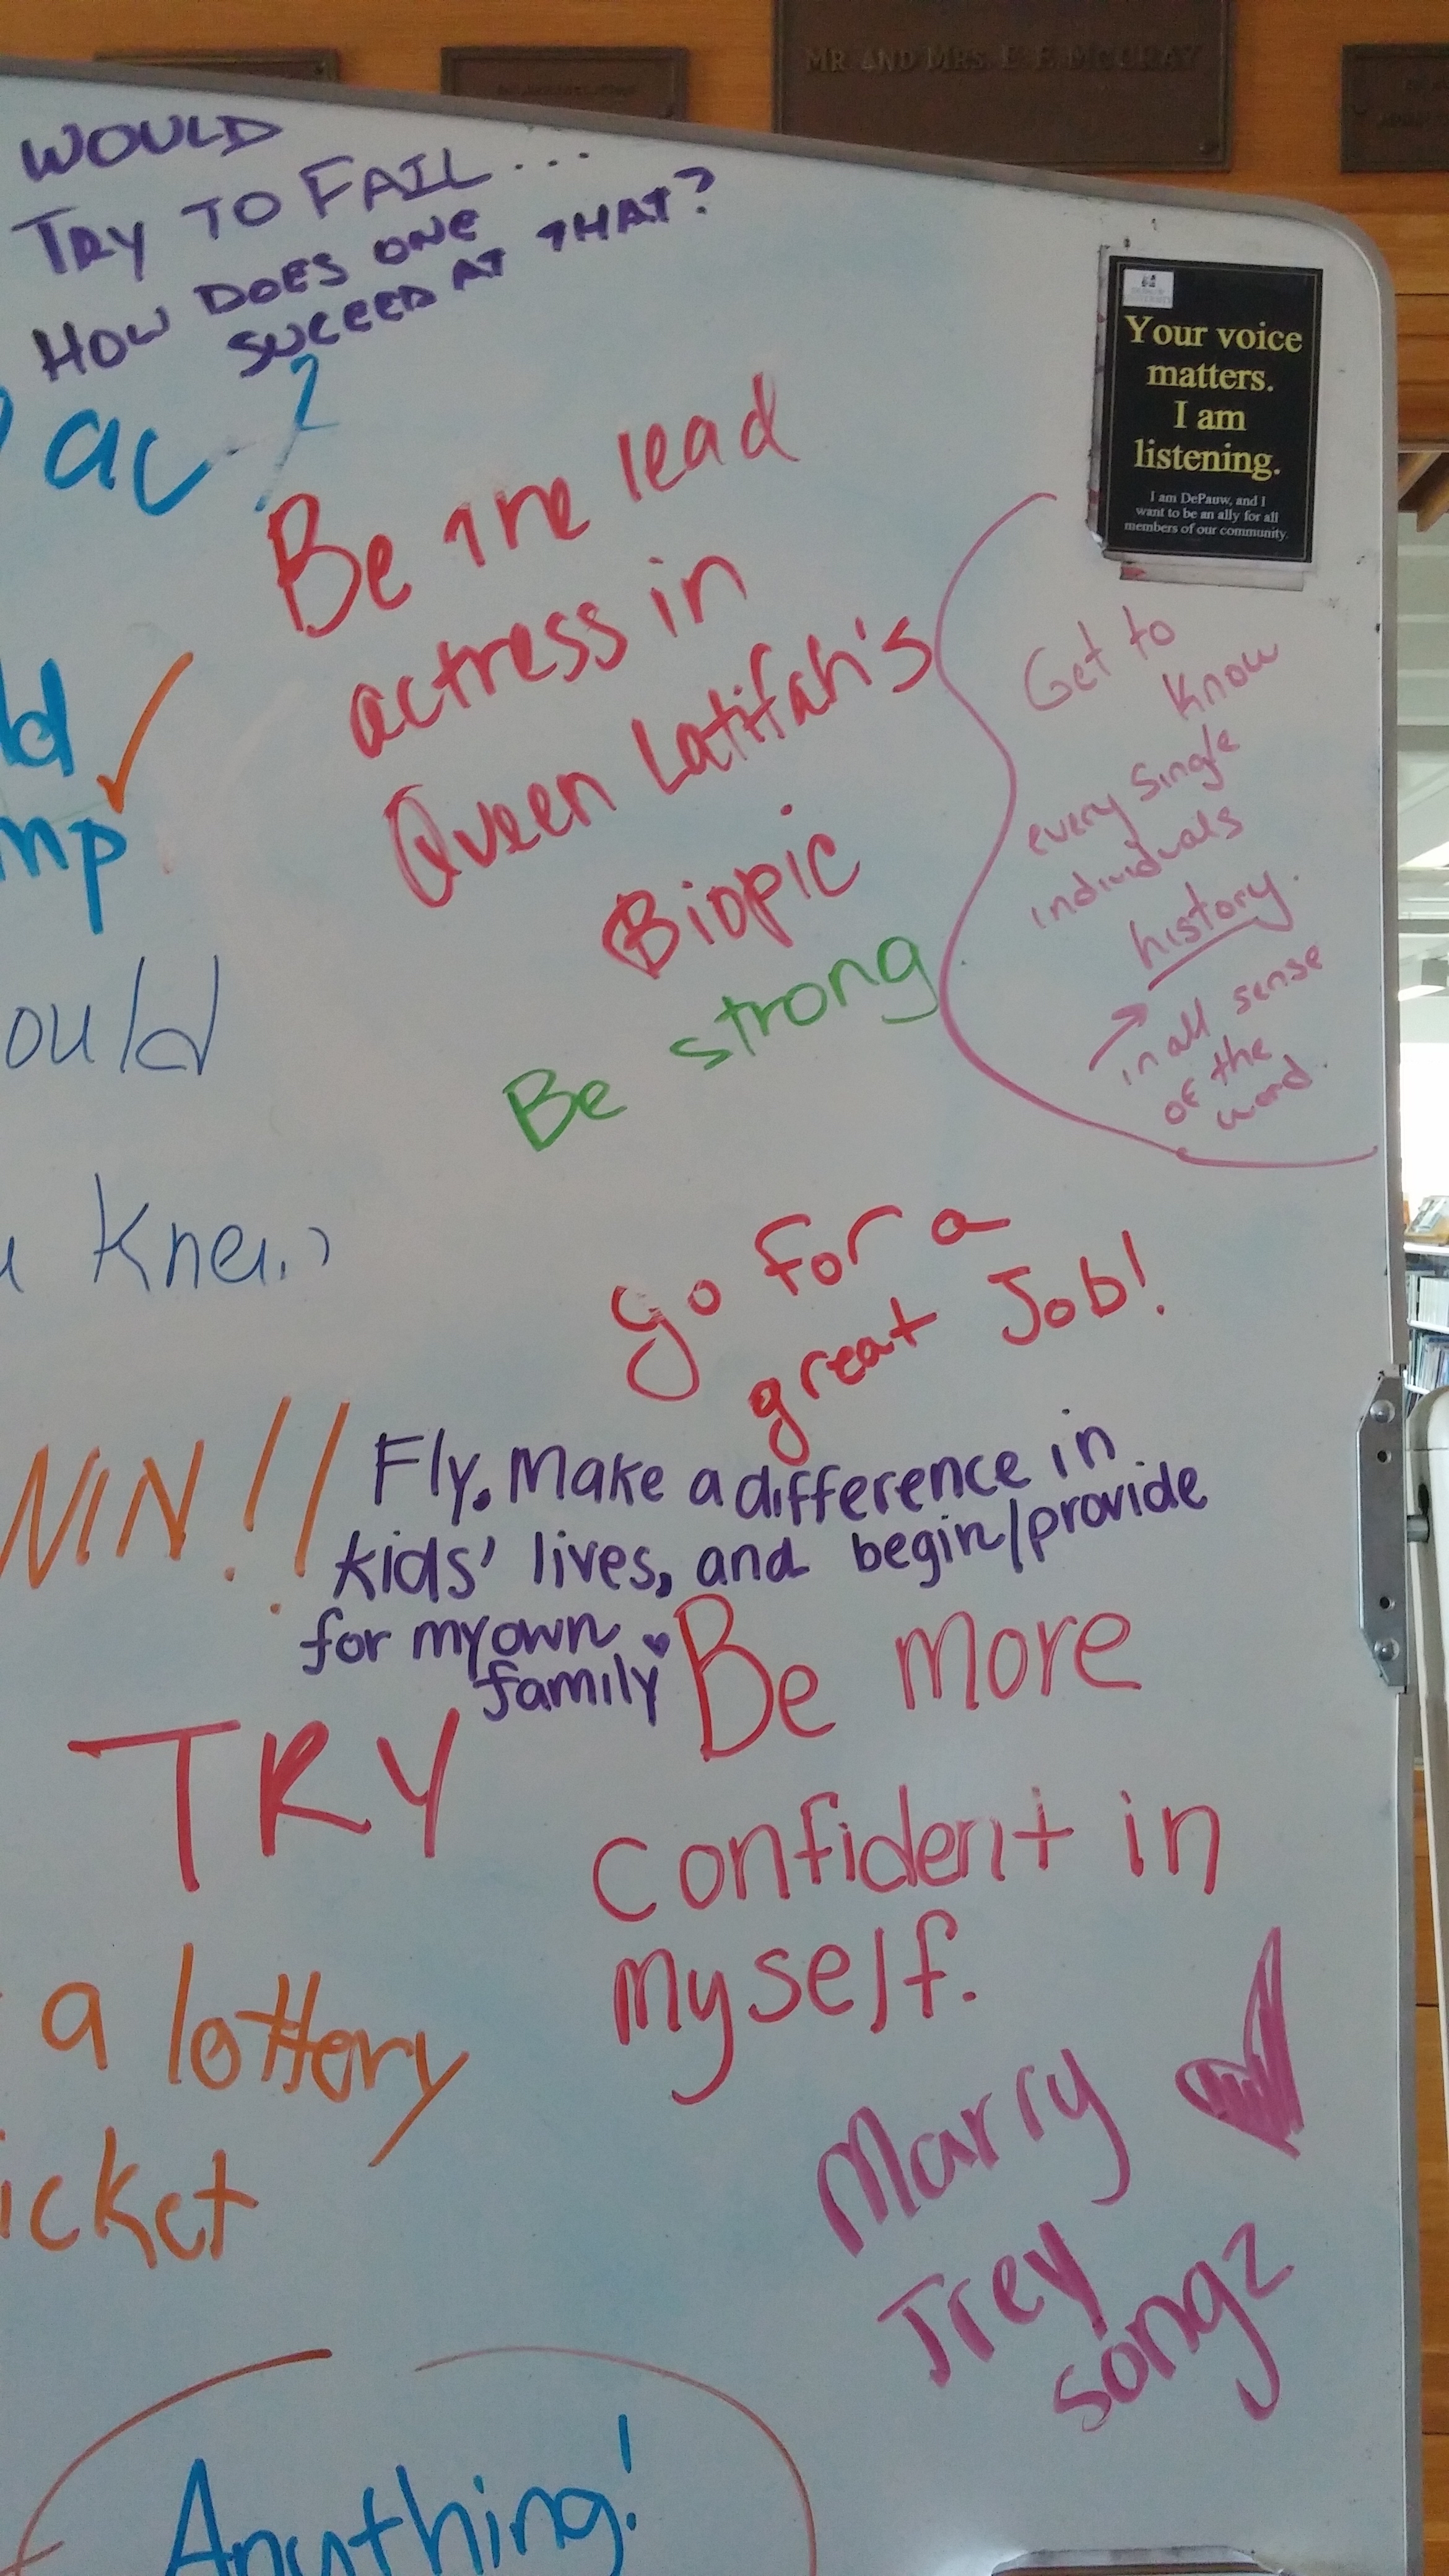 MR. AND MRS. E. E. McCRAY
WOULD
TRY TO FAIL...
HOW DOES ONE
SUCEED AT THAT?
Your voice
matters.
I am
listening.
I am DePauw, and I
want to be an ally for all
members of our community.
Be the lead
actress in
Queen Latifah's
Biopic
Get to
know
every single
individuals
history.
in all sense
of the
word.
Be strong
ould
Knew
go for a
great Job!
NIN!!
Fly. Make a difference in
kids' lives, and begin/provide
for my own
family
TRY
Be more
confident in
myself.
a lottery
icket
Marry
Trey
songz
Anything!